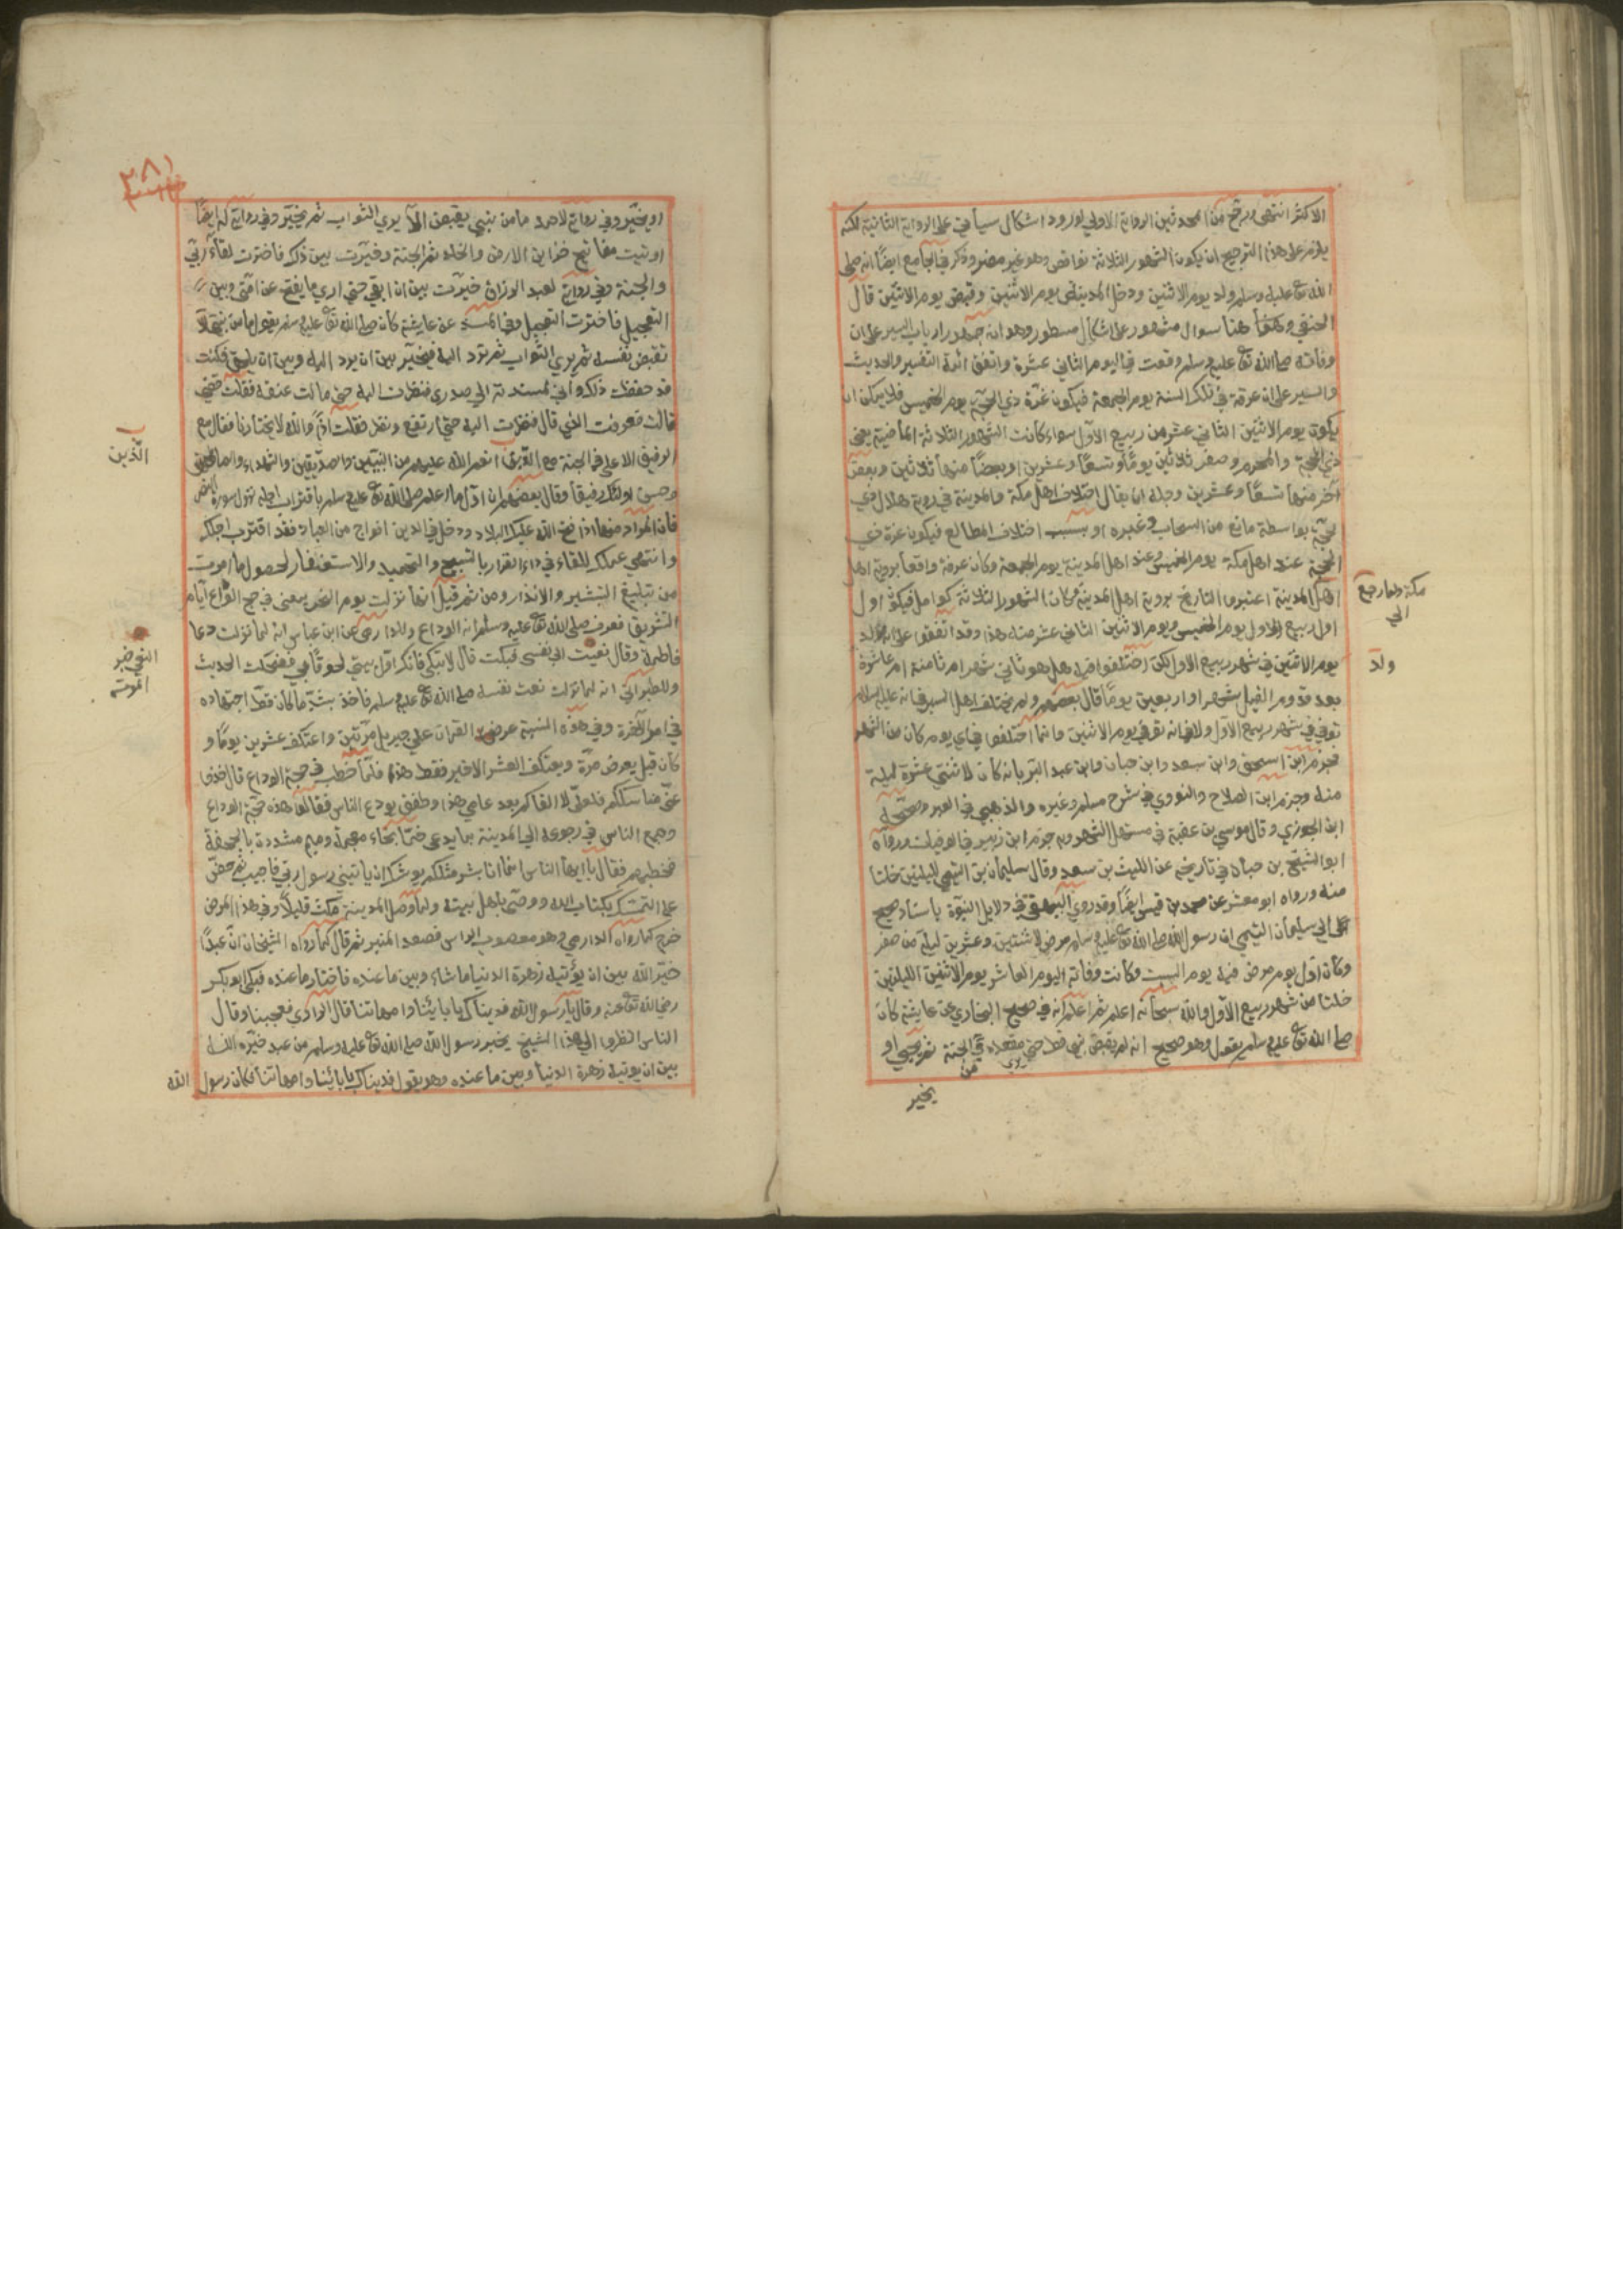 الاكثر انتهى ورجح من المحدثين الرواية الاولى لورود اشكال سيأتي على الرواية الثانية لكنه
يلزم على هذا الترجيح ان يكون الشهور الثلاثة نواقص وهو غير مضر وذكر في الجامع ايضًا انه صلى
الله تع عليه وسلم ولد يوم الاثنين ودخل المدينة يوم الاثنين وقبض يوم الاثنين قال
الحنفي وههنا سوال مشهور على اشكال مسطور وهو ان جمهور ارباب السير على ان
وفاته صلى الله تع عليه وسلم وقعت في اليوم الثاني عشرة واتفق ائمة التفسير والحديث
والسير على ان عرفة في تلك السنة يوم الجمعة فيكون غرّة ذي الحجّة يوم الخميس فلا يمكن ان
يكون يوم الاثنين الثاني عشر من ربيع الاول سواء كانت الشهور الثلاثة الماضية يعني
ذي الحجة والمحرم وصفر ثلاثين يومًا او تسعًا وعشرين او بعضًا منها ثلاثين وبعض
آخر منها تسعًا وعشرين وحله ان يقال اختلاف اهل مكة والمدينة في روية هلال ذي
الحجّة بواسطة مانع من السحاب وغيره او بسبب اختلاف المطالع فيكون غرة ذي
الحجة عند اهل مكة يوم الخميس وعند اهل المدينة يوم الجمعة وكان عرفة واقعا بروية اهل
مكة ولما رجع الي
اهل المدينة اعتبروا التاريخ بروية اهل المدينة وكان الشهور الثلاثة كوامل فيكون اول
اول ربيع الاول يوم الخميس ويوم الاثنين الثاني عشر منه هذا وقد اتفقوا على انه ولد
ولد
يوم الاثنين في شهر ربيع الاول لكن اختلفوا فيه هل هو ثاني شهر ام ثامنة ام عاشرة
بعد قدوم الفيل بشهر او اربعين يومًا قال بعضهم ولم يختلف اهل السير في انه عليه السلام
توفي في شهر ربيع الاول ولا في انه توفي يوم الاثنين وانما اختلفوا في اي يوم كان من الشهر
فجزم ابن اسحق وابن سعد وابن حبان وابن عبد البر بانه كان لاثنتي عشرة ليلة
منه وجزم ابن الصلاح والنووي في شرح مسلم وغيره والذهبي في العبر وصححه
ابن الجوزي وقال موسى بن عقبة في مستهل الشهر وبه جزم ابن زبير في الوفيات ورواه
ابو الشيخ بن حبان في تاريخه عن الليث بن سعد وقال سليمان بن التيمي لليلتين خلتا
منه ورواه ابو معشر عن محمد بن قيس ايضًا وقد روى البيهقي في دلايل النبوّة باسناد صحيح
الى سليمان التيمي ان رسول الله صلى الله تع عليه وسلم مرض لاثنتين وعشرين ليلة من صفر
وكان اول يوم مرض فيه يوم السبت وكانت وفاته اليوم العاشر يوم الاثنين لليلتين
خلتا من شهر ربيع الاول والله سبحانه اعلم ثم اعلم انه في صحيح البخاري عن عايشة كان
صلى الله تع عليه وسلم يقول وهو صحيح انه لم يقبض نبي قط حتى يرى مقعده من الجنة ثم يحيى او
يخير
٣٨١
او يخيّر وفي رواية لاحمد ما من نبي يقبض الا يرى الثواب ثم يخيّر وفي رواية له ايضًا
اوتيت مفاتيح خزاين الارض والخلد ثم الجنة وخيّرت بين ذلك فاخترت لقاء ربّي
والجنة وفي رواية لعبد الرزاق خيّرت بين ان ابقى حتى ارى ما يفتح عن امتي وبين
التعجيل فاخترت التعجيل وفي المسند عن عايشة كان صلى الله تع عليه وسلم يقول ما من نبي الا
تقبض نفسه ثم يرى الثواب ثم ترد اليه فيخيّر بين ان يرد اليه وبين ان يلحق فكنت
قد حفظت ذلك واني لمسندته الى صدري فنظرت اليه حتى مالت عنقه فقلت قضى
قالت فعرفت الذي قال فنظرت اليه حتى ارتفع ونظر فقلت اذًا والله لا يختارنا فقال مع
الرفيق الاعلى في الجنة مع الذين انعم الله عليهم من النبيين والصديقين والشهداء والصالحين
الّذين
وحسن اولئك رفيقًا وقال بعضهم ان اوّل ما اعلم صلى الله تع عليه وسلم باقتراب اجله نزول سورة النصر
فان المراد منها اذا فتح الله عليك البلاد ودخل في الدين افواج من العباد فقد اقترب اجلك
وانتهى عملك للقاء في دار القرار بالتسبيح والتحميد والاستغفار لحصول ما امرت
من تبليغ التبشير والانذار ومن ثم قيل انها نزلت يوم النحر بمعنى في حج الوداع ايام
التشريق فعرف صلى الله تع عليه وسلم انه الوداع وللدارمى عن ابن عباس انه لما نزلت دعا
فاطمة وقال نعيت الى نفسى فبكت قال لا تبكي فانك اول بيتي لحوقًا بي فضحكت الحديث
النعي خبر الموت
وللطبراني انه لما نزلت نعت نفسه صلى الله تع عليه وسلم فاخذ باشدّ ما كان قط اجتهاده
في امر الآخرة وفي هذه السنة عرض القران على جبريل مرّتين واعتكف عشرين يومًا و
كان قبل يعرض مرّة ويعتكف العشر الاخير فقط هذا فلمّا خطب في حجة الوداع قال خذوا
عنّي مناسككم فلعلّي لا القاكم بعد عامي هذا وطفق يودع الناس فقالوا هذه حجّة الوداع
وجمع الناس في رجوعه الى المدينة بما يدعى خمًّا بخاء معجمة وميم مشددة بالجحفة
فخطبهم فقال يا ايها الناس انما انا بشر مثلكم يوشك ان ياتيني رسول ربي فاجيب ثم حضّ
على التمسّك بكتاب الله ووصّى باهل بيته ولما وصل المدينة مكث قليلًا وفي هذا المرض
خرج كما رواه الدارمي وهو معصوب الراس فصعد المنبر ثم قال كما رواه الشيخان انّ عبدًا
خيّر الله بين ان يؤتيه زهرة الدنيا ما شاء وبين ما عنده فاختار ما عنده فبكى ابو بكر
رضي الله تع عنه وقال يا رسول الله فديناك بابائنا وامهاتنا قال الراوي فعجبنا وقال
الناس انظروا الى هذا الشيخ يخبر رسول الله صلى الله تع عليه وسلم من عبد خيّره الله
بين ان يوتيه زهرة الدنيا وبين ما عنده وهو يقول فديناك بابائنا وامهاتنا فكان رسول الله